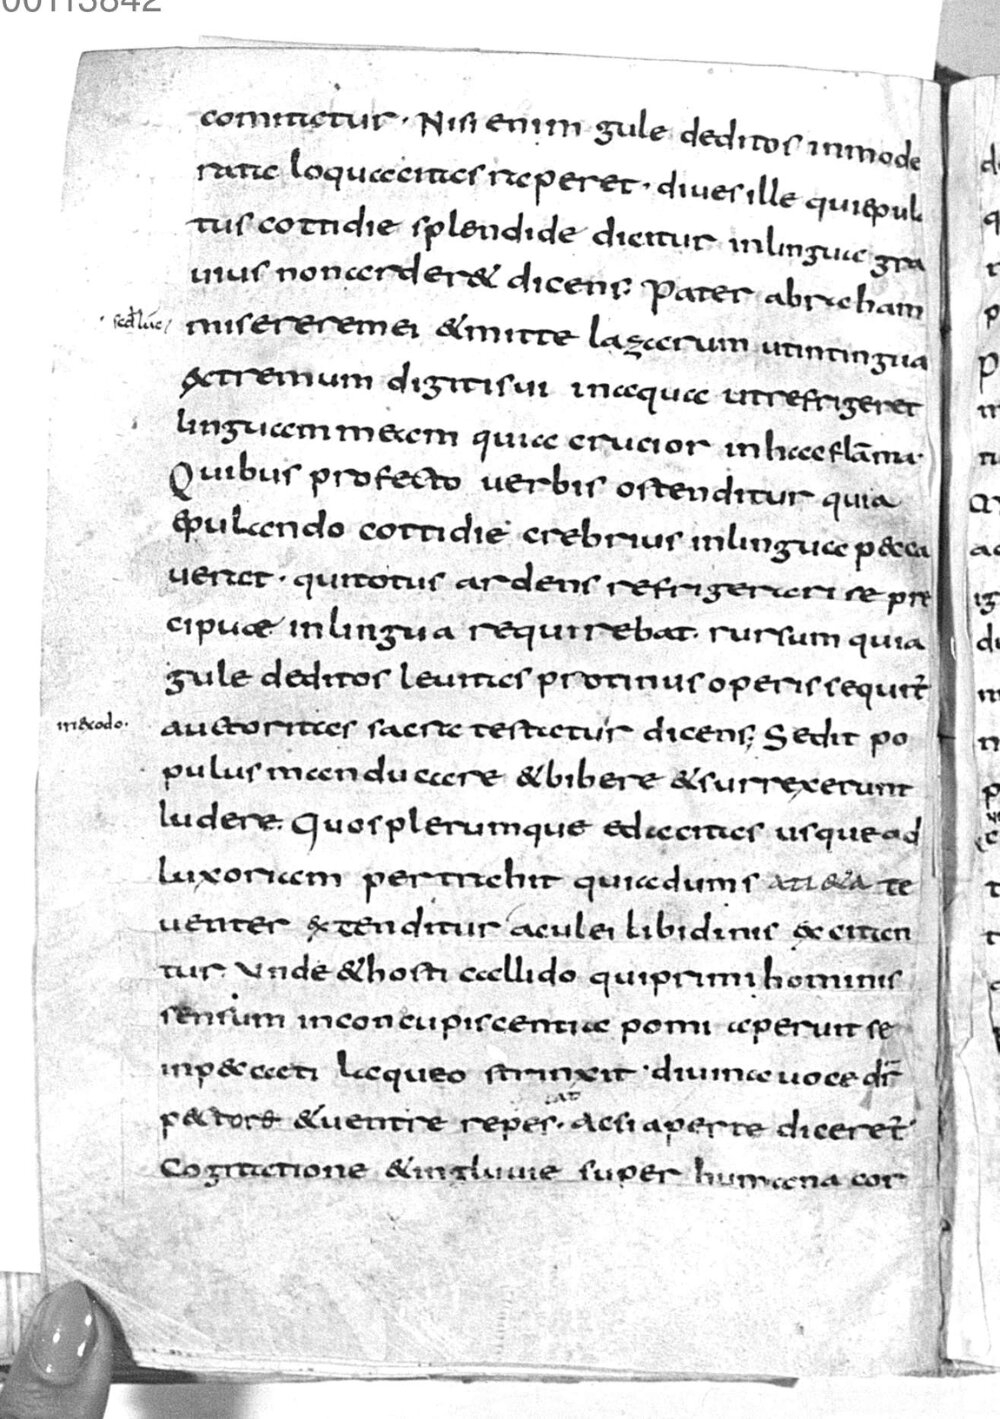 00113842
comitatur. Nisi enim gule deditos inmode
rata loquacitas raperet. dives ille qui epul
tus cottidie splendide dicitur in lingua gra
vius non arder& dicens; Pater abraham
sed luc
miserere mei & mitte lazarum ut intingua
extremum digiti sui in aqua ut refrigeret
linguam meam quia crucior in hac flāma.
Quibus profecto verbis ostenditur quia
epulando cottidie crebrius in lingua p&ca
verat. qui totus ardens refrigerari se pre
cipuae in lingua requirebat. rursum quia
gule deditos levitas protinus operis sequit̄
in exodo.
auctoritas sacra testatur dicens; Sedit po
pulus manducare & bibere & surrexerunt
ludere. Quos plerumque edacitas usque ad
luxoriam pertrahit quia dum s te
venter extenditur aculei libidinis excitan
tur. Unde & hosti callido qui primi hominis
sensum in concupiscentia pomi aperuit se
in p&cati laqueo strinxit. divina voce dr̄
p&tore & ventre repes. Ac si aperte diceret
Cogitatione & ingluvie super humana cor